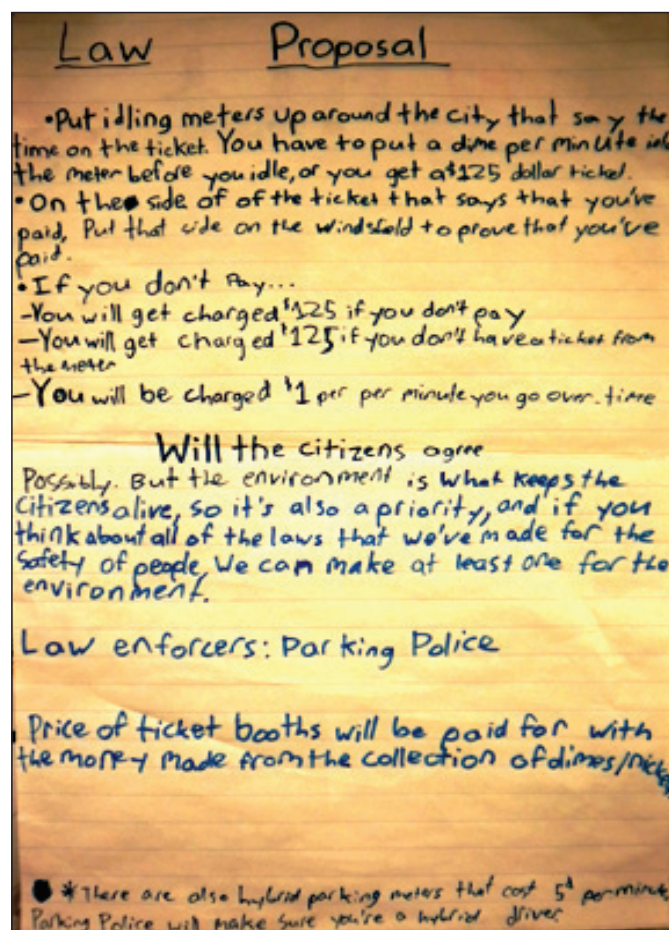 Law Proposal
•Put idling meters up around the city that say the
time on the ticket. You have to put a dime per minute into
the meter before you idle, or you get a $125 dollar ticket.
•On the side of of the ticket that says that you've
paid, Put that side on the windsheld to prove that you've
paid.
•If you don't Pay...
-You will get charged $125 if you don't pay
-You will get charged $125 if you don't have a ticket from
the meter
-You will be charged $1 per per minute you go over. time
Will the citizens agree
Possibly. But the environment is what keeps the
citizens alive, so it's also a priority, and if you
think about all of the laws that we've made for the
safety of people, We can make at least one for the
environment.
Law enforcers: Parking Police
Price of ticket booths will be paid for with
the money made from the collection of dimes/
* There are also hybrid parking meters that cost 5¢ per minute,
Parking Police will make sure you're a hybrid driver